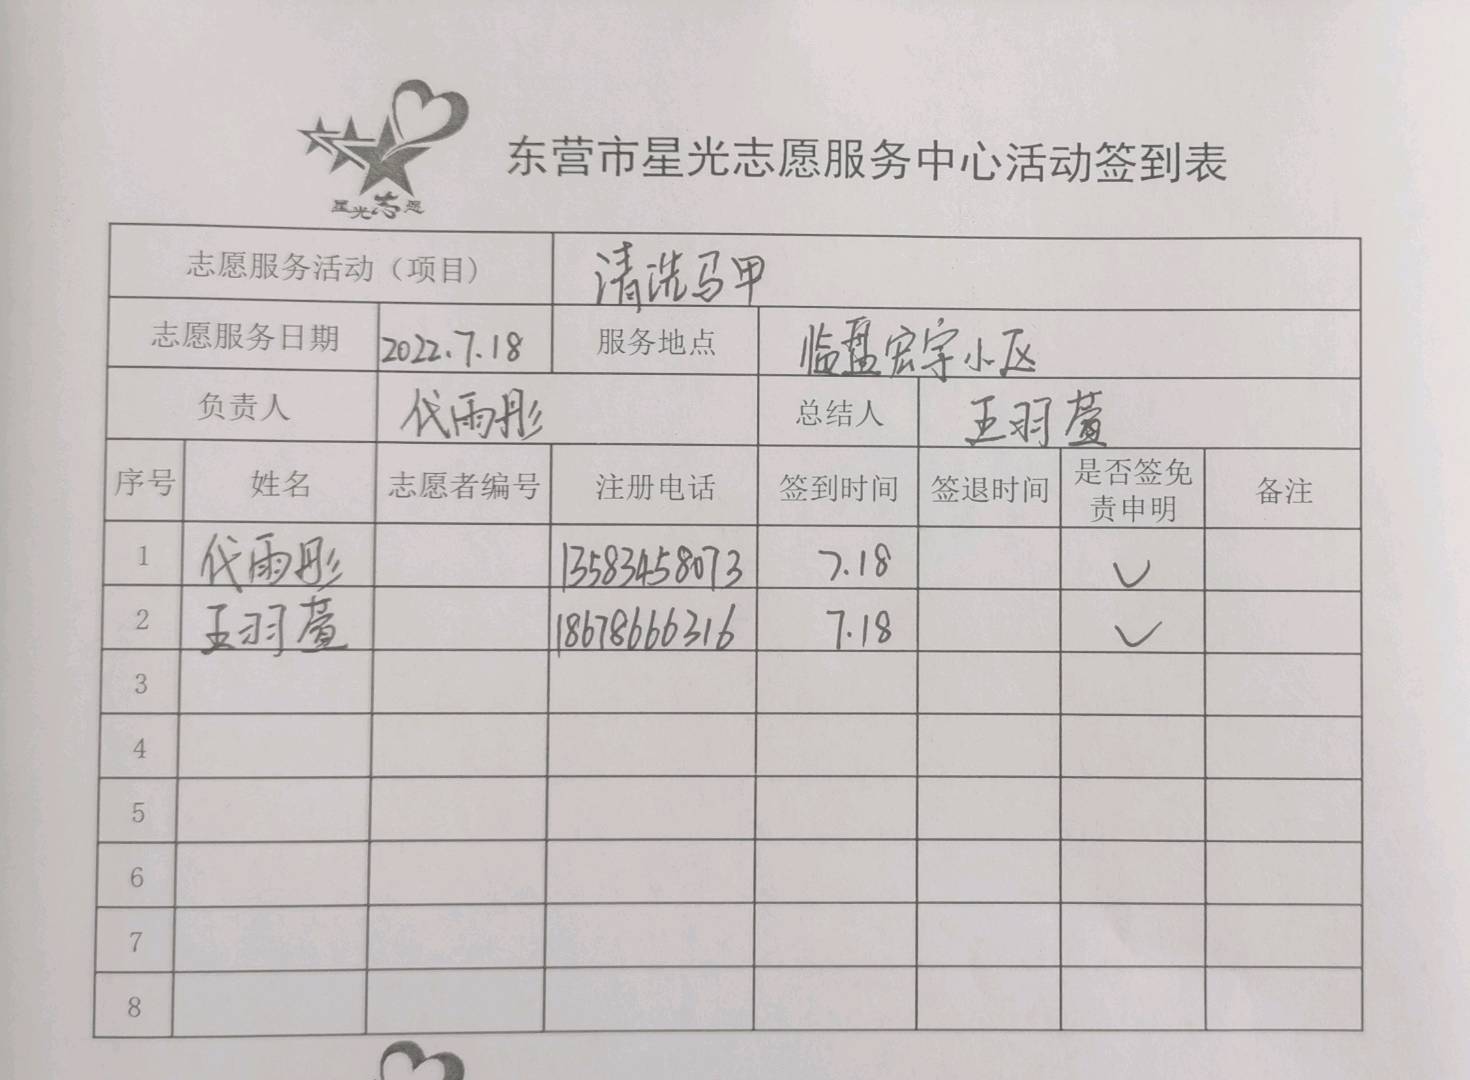 星光志愿
东营市星光志愿服务中心活动签到表
志愿服务活动（项目） 清洗马甲
志愿服务日期 2022.7.18 服务地点 临盘宏宇小区
负责人 代雨彤 总结人 王羽萱
序号 姓名 志愿者编号 注册电话 签到时间 签退时间 是否签免责申明 备注
1 代雨彤 13583458073 7.18 ✓
2 王羽萱 18678666316 7.18 ✓
3
4
5
6
7
8